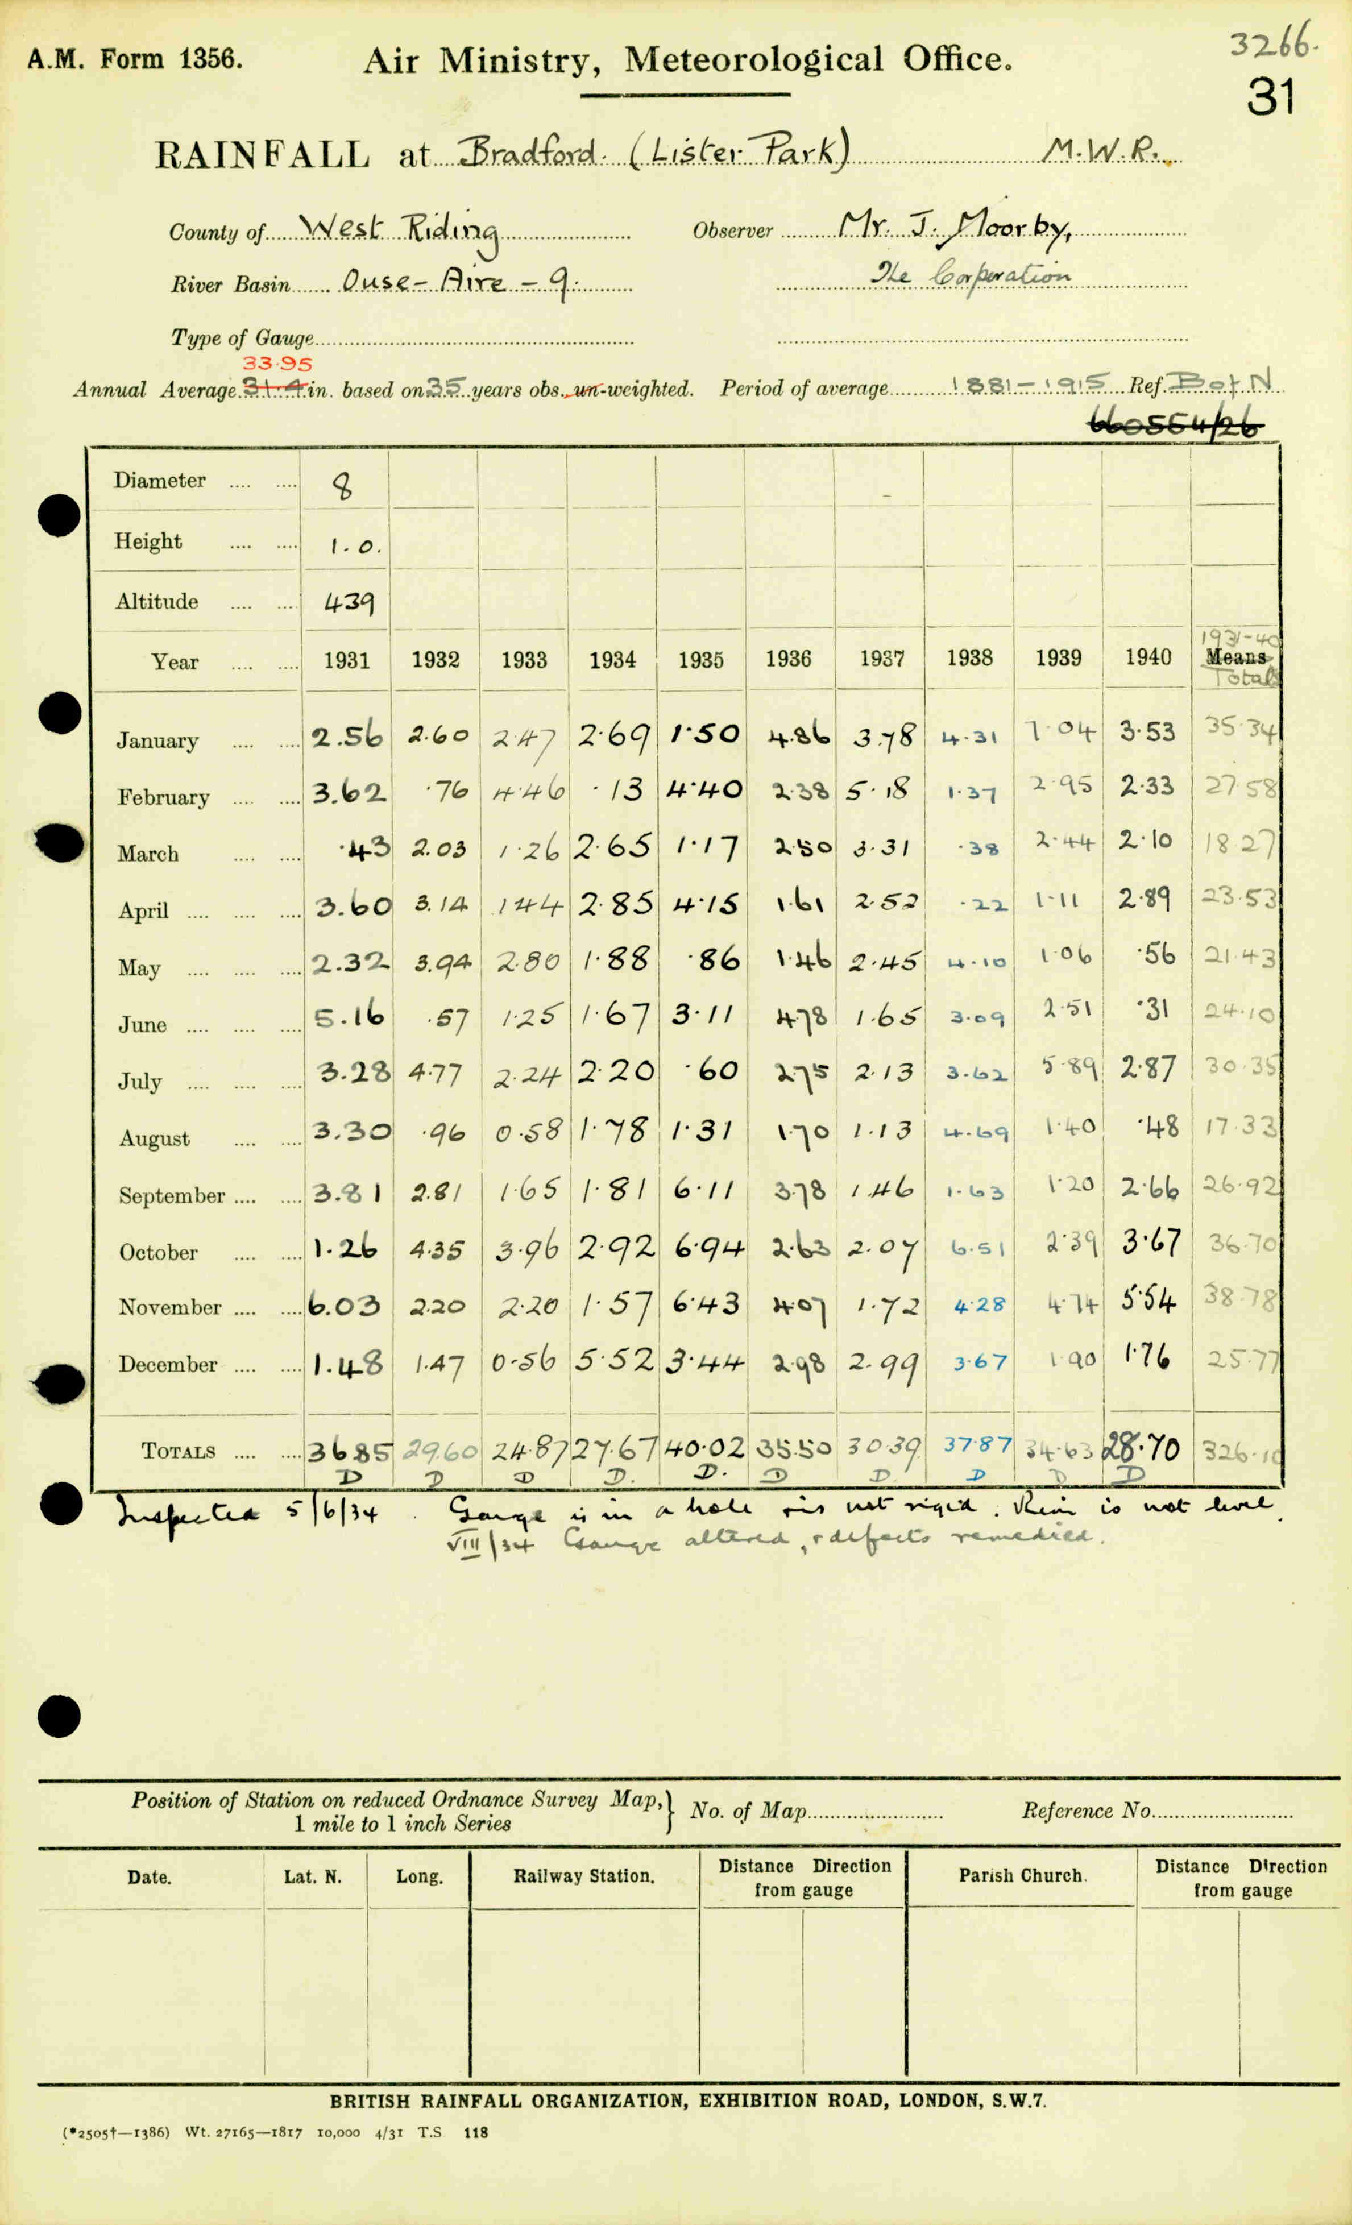 3266.
A.M. Form 1356. Air Ministry, Meteorological Office.
31
RAINFALL at Bradford. (Lister Park) M.W.R.
County of West Riding Observer Mr. J. Moorby,
River Basin Ouse - Aire - 9. The Corporation
Type of Gauge
33.95
Annual Average 31.4 in. based on 35 years obs. un-weighted. Period of average 1881-1915 Ref. B of N
660554/26
Diameter 8
Height 1.0.
Altitude 439
1931-40
Year 1931 1932 1933 1934 1935 1936 1937 1938 1939 1940 Means
Totals
January 2.56 2.60 2.47 2.69 1.50 4.86 3.78 4.31 7.04 3.53 35.34
February 3.62 .76 4.46 .13 4.40 2.38 5.18 1.37 2.95 2.33 27.58
March .43 2.03 1.26 2.65 1.17 2.50 3.31 .38 2.44 2.10 18.27
April 3.60 3.14 1.44 2.85 4.15 1.61 2.52 .22 1.11 2.89 23.53
May 2.32 3.94 2.80 1.88 .86 1.46 2.45 4.10 1.06 .56 21.43
June 5.16 .57 1.25 1.67 3.11 4.78 1.65 3.09 2.51 .31 24.10
July 3.28 4.77 2.24 2.20 .60 2.75 2.13 3.62 5.89 2.87 30.35
August 3.30 .96 0.58 1.78 1.31 1.70 1.13 4.69 1.40 .48 17.33
September 3.81 2.81 1.65 1.81 6.11 3.78 1.46 1.63 1.20 2.66 26.92
October 1.26 4.35 3.96 2.92 6.94 2.63 2.07 6.51 2.39 3.67 36.70
November 6.03 2.20 2.20 1.57 6.43 4.07 1.72 4.28 4.74 5.54 38.78
December 1.48 1.47 0.56 5.52 3.44 2.98 2.99 3.67 1.90 1.76 25.77
TOTALS 36.85 29.60 24.87 27.67 40.02 35.50 30.39 37.87 34.63 28.70 326.10
D D D D. D. D D. D D D
Inspected 5/6/34. Gauge is in a hole & is not rigid. Rim is not level.
VIII/34 Gauge altered, & defects remedied.
Position of Station on reduced Ordnance Survey Map, } No. of Map Reference No.
1 mile to 1 inch Series
Date. Lat. N. Long. Railway Station. Distance Direction from gauge Parish Church. Distance Direction from gauge
BRITISH RAINFALL ORGANIZATION, EXHIBITION ROAD, LONDON, S.W.7.
(*2505†—1386) Wt. 27165—1817 10,000 4/31 T.S. 118